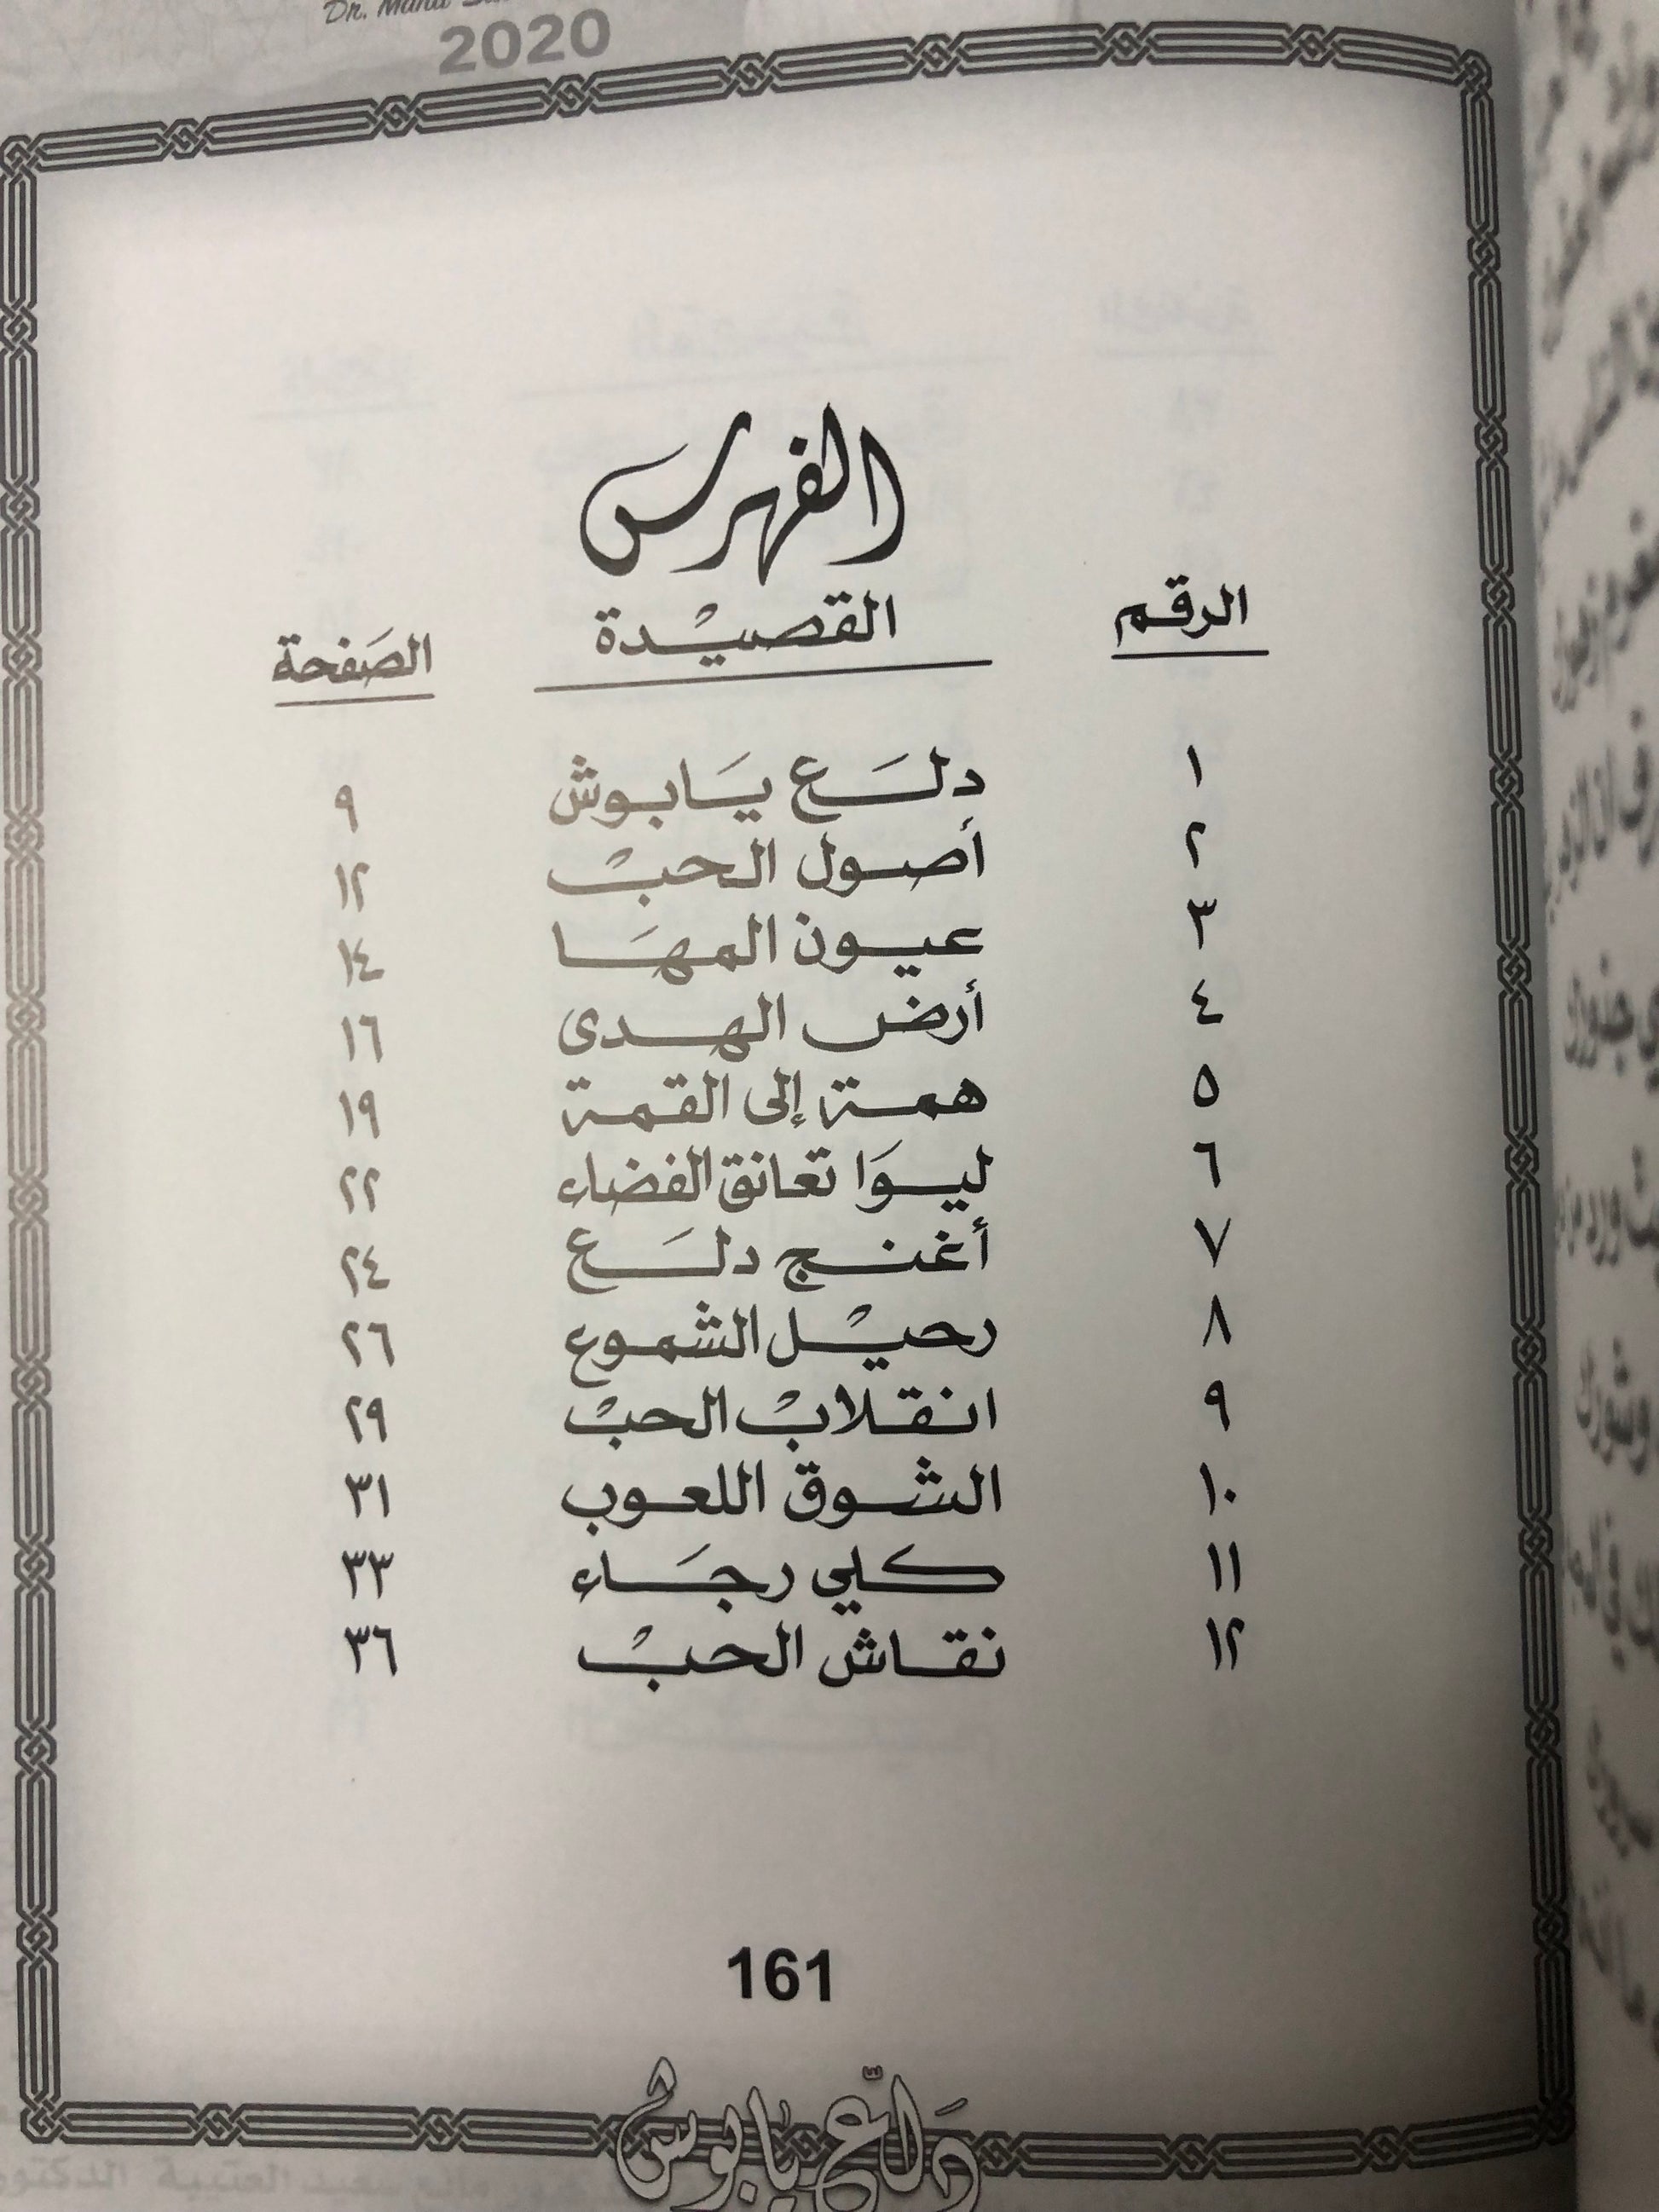 2020
الفهرس
الرقم القصيدة الصفحة
١ دلَع يَابوش ٩
٢ أصول الحب ١٢
٣ عيون المهَا ١٤
٤ أرض الهدى ١٦
٥ همة إلى القمة ١٩
٦ ليوَا تعانق الفضاء ٢٢
٧ أغنج دلَع ٢٤
٨ رحيل الشموع ٢٦
٩ انقلاب الحب ٢٩
١٠ الشوق اللعوب ٣١
١١ كلي رجَاء ٣٣
١٢ نقاش الحب ٣٦
161
دلع يابوش